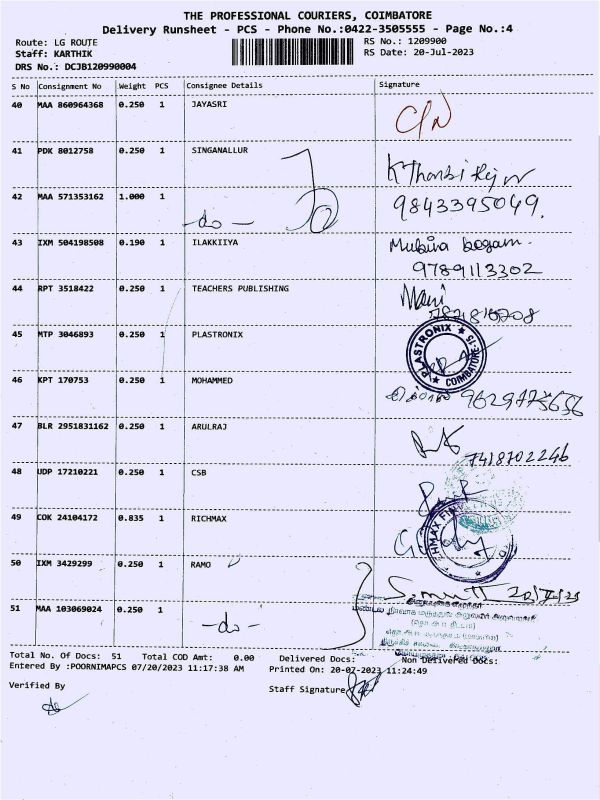 THE PROFESSIONAL COURIERS, COIMBATORE
Delivery Runsheet - PCS - Phone No.:0422-3505555 - Page No.:4
Route: LG ROUTE
RS No.: 1209900
Staff: KARTHIK
RS Date: 20-Jul-2023
DRS No.: DCJB120990004
S No Consignment No Weight PCS Consignee Details Signature
40 MAA 860964368 0.250 1 JAYASRI
41 PDK 8012758 0.250 1 SINGANALLUR
42 MAA 571353162 1.000 1 9843395049.
43 IXM 504198508 0.190 1 ILAKKIIYA
9789113302
44 RPT 3518422 0.250 1 TEACHERS PUBLISHING Mani
45 MTP 3046893 0.250 1 PLASTRONIX
PLASTRONIX
COIMBATORE-15
46 KPT 170753 0.250 1 MOHAMMED
47 BLR 2951831162 0.250 1 ARULRAJ
7418702246
48 UDP 17210221 0.250 1 CSB
49 COK 24104172 0.835 1 RICHMAX
50 IXM 3429299 0.250 1 RAMO
51 MAA 103069024 0.250 1
Total No. Of Docs: 51 Total COD Amt: 0.00 Delivered Docs: Non Delivered Docs:
Entered By :POORNIMAPCS 07/20/2023 11:17:38 AM Printed On: 20-07-2023 11:24:49
Verified By
Staff Signature